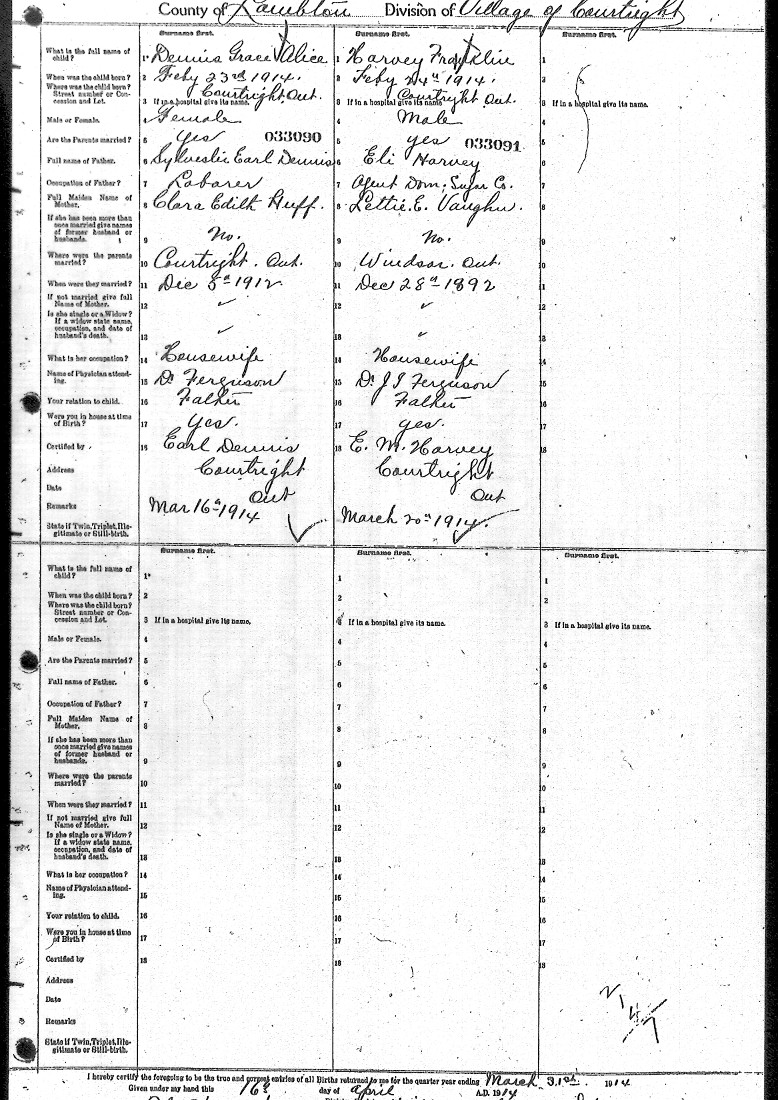 County of Lambton Division of Village of Courtright
Surname first. Surname first. Surname first.
What is the full name of child? 1 Dennis Grace Alice 1 Harvey Franklin 1
When was the child born? 2 Feby 23rd 1914. 2 Feby 24th 1914. 2
Where was the child born? Street number or Concession and Lot. 3 If in a hospital give its name. Courtright Ont. 3 If in a hospital give its name Courtright Ont. 3 If in a hospital give its name.
Male or Female. 4 Female 4 Male 4
Are the Parents married? 5 Yes 033090 5 yes 033091 5
Full name of Father. 6 Sylvester Earl Dennis 6 Eli Harvey 6
Occupation of Father? 7 Laborer 7 Agent Dom. Sugar Co. 7
Full Maiden Name of Mother. 8 Clara Edith Huff. 8 Lettie. E. Vaughn. 8
If she has been more than once married give names of former husband or husbands. 9 No. 9 No. 9
Where were the parents married? 10 Courtright. Ont. 10 Windsor. Ont. 10
When were they married? 11 Dec 5th 1912 11 Dec 28th 1892 11
If not married give full Name of Mother. 12 ✓ 12 ✓ 12
Is she single or a Widow? If a widow state name, occupation, and date of husband's death. 13 ✓ 13 ✓ 13
What is her occupation? 14 Housewife 14 Housewife 14
Name of Physician attending. 15 Dr Ferguson 15 Dr J I Ferguson 15
Your relation to child. 16 Father 16 Father 16
Were you in house at time of Birth? 17 Yes. 17 yes. 17
Certified by 18 Earl Dennis 18 E. M. Harvey 18
Address Courtright Ont Courtright Ont
Date
Remarks Mar 16th 1914 March 20th 1914.
State if Twin, Triplet, Illegitimate or Still-birth. ✓ ✓
Surname first. Surname first. Surname first.
What is the full name of child? 1 1 1
When was the child born? 2 2 2
Where was the child born? Street number or Concession and Lot. 3 If in a hospital give its name, 3 If in a hospital give its name. 3 If in a hospital give its name.
Male or Female. 4 4 4
Are the Parents married? 5 5 5
Full name of Father. 6 6 6
Occupation of Father? 7 7 7
Full Maiden Name of Mother. 8 8 8
If she has been more than once married give names of former husband or husbands. 9 9 9
Where were the parents married? 10 10 10
When were they married? 11 11 11
If not married give full Name of Mother. 12 12 12
Is she single or a Widow? If a widow state name, occupation, and date of husband's death. 13 13 13
What is her occupation? 14 14 14
Name of Physician attending. 15 15 15
Your relation to child. 16 16 16
Were you in house at time of Birth? 17 17 17
Certified by 18 18 18
Address
Date
Remarks
State if Twin, Triplet, Illegitimate or Still-birth.
I hereby certify the foregoing to be the true and correct entries of all Births returned to me for the quarter year ending March 31st. 1914
Given under my hand this 16th day of April A.D. 1914